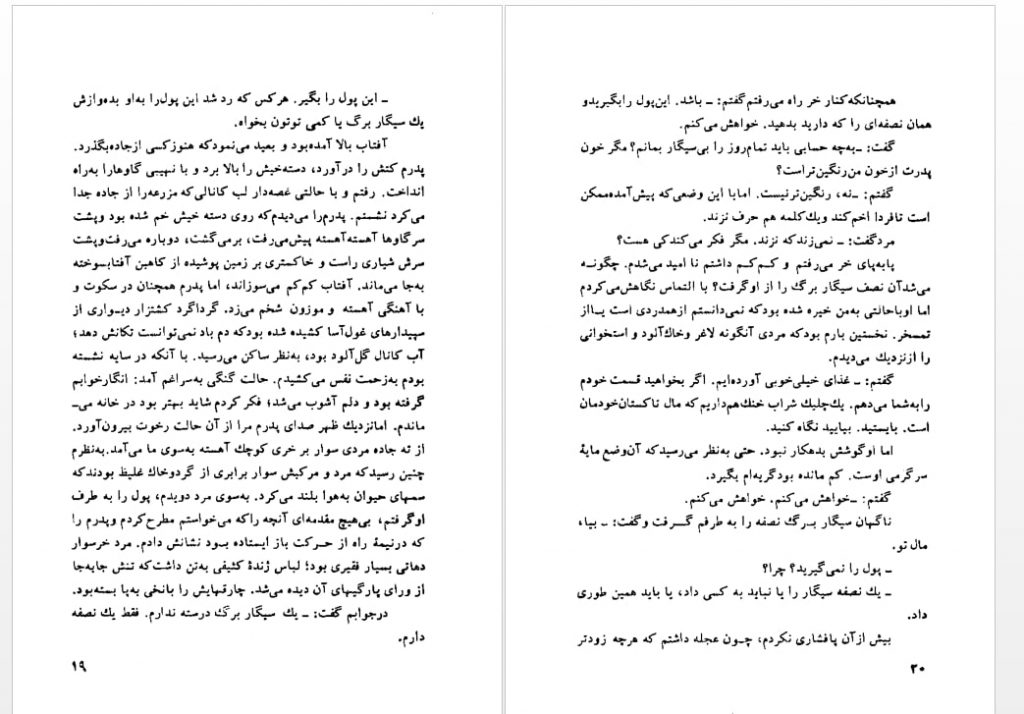 ـ این پول را بگیر. هرکس که رد شد این پول‌را به‌او بده‌وازش
یك سیگار برگ یا کمی توتون بخواه.
آفتاب بالا آمده‌بود و بعید می‌نمودکه هنوزکسی ازجاده‌بگذرد.
پدرم کتش را درآورد، دسته‌خیش را بالا برد و با نهیبی گاوهارا به‌راه
انداخت. رفتم و با حالتی غصه‌دار لب کانالی‌که مزرعه‌را از جاده جدا
می‌کرد نشستم. پدرم‌را می‌دیدم‌که روی دسته خیش خم شده بود وپشت
سرگاوها آهسته‌آهسته پیش‌می‌رفت، برمی‌گشت، دوباره می‌رفت‌وپشت
سرش شیاری راست و خاکستری بر زمین پوشیده از کاهبن آفتاب‌سوخته
به‌جا می‌ماند. آفتاب کم‌کم می‌سوزاند، اما پدرم همچنان در سکوت و
با آهنگی آهسته و موزون شخم می‌زد. گرداگرد کشتزار دیـواری از
سپیدارهای غول‌آسا کشیده شده بودکه دم باد نمی‌توانست تکانش دهد؛
آب کانال گل‌آلود بود، به‌نظر ساکن می‌رسید. با آنکه در سایه نشسته
بودم به‌زحمت نفس می‌کشیدم. حالت گنگی به‌سراغم آمد: انگارخوابم
گرفته بود و دلم آشوب می‌شد؛ فکر کردم شاید بهتر بود در خانه می‌ـ
ماندم. امانزدیك ظهر صدای پدرم مرا از آن حالت رخوت بیرون‌آورد.
از ته جاده مردی سوار بر خری کوچك آهسته به‌سوی ما می‌آمد.به‌نظرم
چنین رسیدکه مرد و مرکبش سوار برابری از گردوخاك غلیظ بودندکه
سمهای حیوان به‌هوا بلند می‌کرد. به‌سوی مرد دویدم، پول را به طرف
اوگرفتم، بی‌هیچ مقدمه‌ای آنچه راکه می‌خواستم مطرح‌کردم وپدرم را
که درنیمهٔ راه از حـرکت باز ایستاده بـود نشانش دادم. مرد خرسوار
دهاتی بسیار فقیری بود؛ لباس ژندهٔ کثیفی به‌تن داشت‌که تنش جابه‌جا
از ورای پارگیهای آن دیده می‌شد. چارقهایش را بانخی به‌پا بسته‌بود.
درجوابم گفت: ـ یك سیگار برگ درسته ندارم. فقط یك نصفه
دارم.
۱۹
همچنانکه‌کنار خر راه می‌رفتم‌گفتم: ـ باشد. این‌پول رابگیریدو
همان نصفه‌ای را که دارید بدهید. خواهش می‌کنم.
گفت: ـ‌به‌چه حسابی باید تمام‌روز را بی‌سیگار بمانم؟ مگر خون
پدرت ازخون من‌رنگین‌تراست؟
گفتم: ـ‌نه، رنگین‌ترنیست. امابا این وضعی‌که پیش‌آمده‌ممکن
است تافردا اخم‌کند ویك‌کلمه هم حرف نزند.
مردگفت: ـ نمی‌زندکه نزند. مگر فکر می‌کندکی هست؟
پابه‌پای خر می‌رفتم و کـم‌کـم داشتم نا امید می‌شدم. چگونـه
می‌شدآن نصف سیگار برگ را از اوگرفت؟ با التماس نگاهش‌می‌کردم
اما اوباحالتی به‌من خیره شده بودکه نمی‌دانستم ازهمدردی است یـااز
تمسخر. نخستین بارم بودکه مردی آنگونه لاغر وخاك‌آلود و استخوانی
را ازنزدیك می‌دیدم.
گفتم: ـ غذای خیلی‌خوبی آورده‌ایم. اگر بخواهید قسمت خودم
رابه‌شما می‌دهم. یك‌چلیك شراب خنك‌هم‌داریم‌که مال تاکستان‌خودمان
است. بایستید. بیایید نگاه کنید.
اما اوگوشش بدهکار نبود. حتی به‌نظر می‌رسیدکه آن‌وضع مایهٔ
سرگرمی اوست. کم مانده بودگریه‌ام بگیرد.
گفتم: ـ‌خواهش می‌کنم. خواهش می‌کنم.
ناگهان سیگار بـرگ نصفه را به طرفم گـرفت وگفت: ـ بیا،
مال تو.
ـ پول را نمی‌گیرید؟ چرا؟
ـ یك نصفه سیگار را یا نباید به کسی داد، یا باید همین طوری
داد.
بیش ازآن پافشاری نکردم، چـون عجله داشتم که هرچه زودتر
۲۰